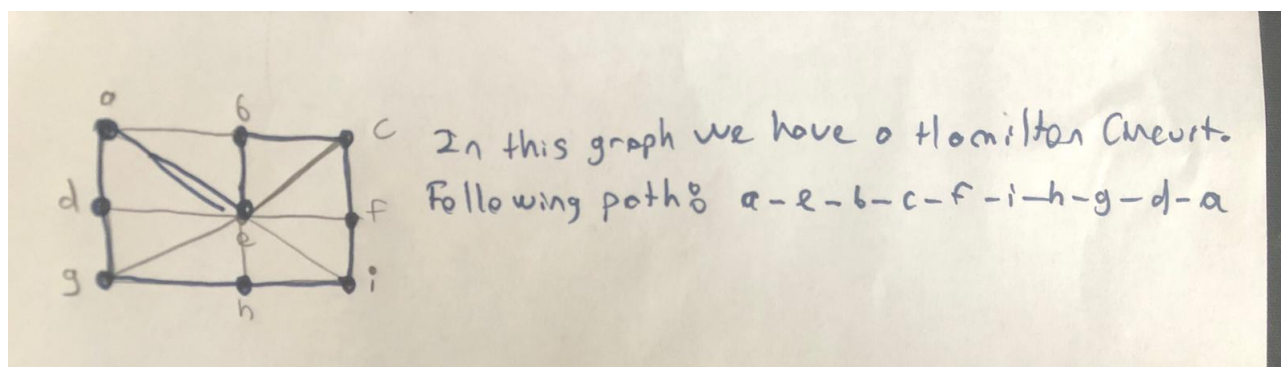 a
b
c
In this graph we have a Hamilton Circuit.
d
f
Following path: a-e-b-c-f-i-h-g-d-a
e
g
i
h